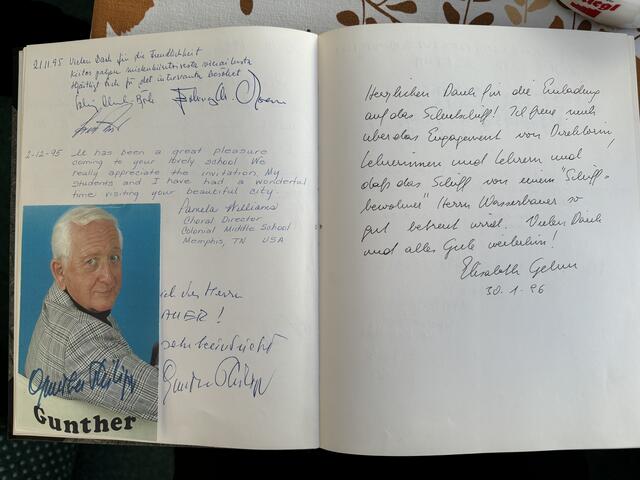 21.11.95 Vielen Dank für die Freundlichkeit
Kiitos paljon mielenkiintoisesta vierailusta
Hjärtligt tack för det intressanta besöket
2-12-95 It has been a great pleasure
coming to your lovely school. We
really appreciate the invitation. My
students and I have had a wonderful
time visiting your beautiful city.
Pamela Williams
Choral Director
Colonial Middle School
Memphis, TN USA
ich des Herrn
AUER!
sehr beeindruckt
Gunther Philipp
Gunther Philipp
Gunther
Herzlichen Dank für die Einladung
auf das Schulschiff! Ich freue mich
über das Engagement von Direktorin,
Lehrerinnen und Lehrern und,
daß das Schiff von einem "Schiff-
bewohner" Herrn Wasserbauer so
gut betreut wird. Vielen Dank
und alles Gute weiterhin!
Elisabeth Gehrer
30.1.96